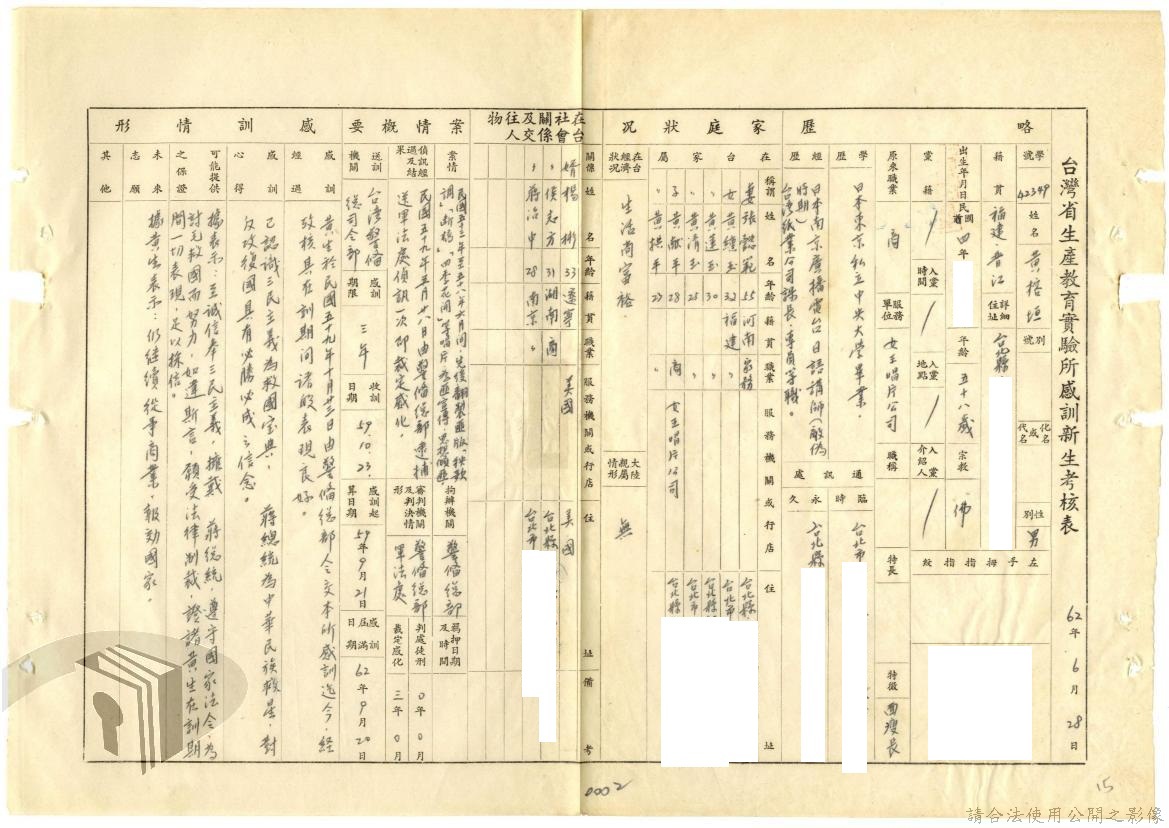 台灣省生產教育實驗所感訓新生考核表
62年6月28日
略歷
學號 42349
姓名 黃榕垣
別號
化名或代名
性別 男
籍貫 福建晉江
詳細住址 台北縣
左手拇指指紋
出生年月日 民國 四年
年齡 五十八歲
宗教 佛
黨籍
入黨時間
入黨地點
入黨介紹人
原來職業 商
服務單位 女王唱片公司
職稱
特長
特徵 面瘦長
學歷 日本東京私立中央大學畢業。
經歷 日本南京廣播電台日語講師(敵偽時期)
台灣紙業公司課長、專員等職。
通訊處
臨時 台北市
永久 台北縣
家庭狀況
在台家屬
稱謂 姓名 年齡 籍貫 職業 服務機關或行店 住址
妻 張懿範 55 河南 家務 台北縣
女 黃緯玉 32 福建 〃 台北市
〃 黃蓮玉 30 〃 台北縣
〃 黃清玉 25 〃 台北縣
子 黃猷平 28 商 女王唱片公司 台北市
〃 黃拱平 27 〃 台北縣
在台經濟狀況 生活尚富裕
大陸親屬情形 無
在台社會關係及交往人物
關係 姓名 年齡 籍貫 職業 服務機關或行店 住址 備考
婿 楊彬 33 遼寧 美國 美國
〃 侯史方 31 湖南 商 台北縣
〃 蔣治中 28 南京 〃 台北市
案情概要
案情 民國五十三年至五十八年六月間,先後翻製匪版「秧歌調」「斷橋」「四季花開」等唱片為匪宣傳,思想傾匪
拘辦機關 警備總部
羈押日期及時間
偵訊經過及結果 民國五十九年五月廿八日由警備總部逮捕
送軍法處偵訊一次即裁定感化。
審判機關及判決情形 警備總部
軍法處
判處徒刑 0年0月
裁定感化 三年0月
送訓機關 台灣警備總司令部
感訓期限 三年
收訓日期 59.10.23.
感訓起算日期 59年9月21日
感訓屆滿日期 62年9月20日
感訓情形
感訓經過 黃生於民國五十九年十月廿三日由警備總部令交本所感訓迄今,經
考核其在訓期間諸般表現良好。
感訓心得 已認識三民主義為救國宝典,蔣總統為中華民族救星,對
反攻復國具有必勝必成之信念。
可能提供之保證 據表示:至誠信奉三民主義,擁戴 蔣總統,遵守國家法令,為
討毛救國而努力,如違斯言,願受法律制裁,證諸黃生在訓期
間一切表現,足以採信。
未來志願 據黃生表示:仍繼續從事商業,報効國家。
其他
0002
15
請合法使用公開之影像